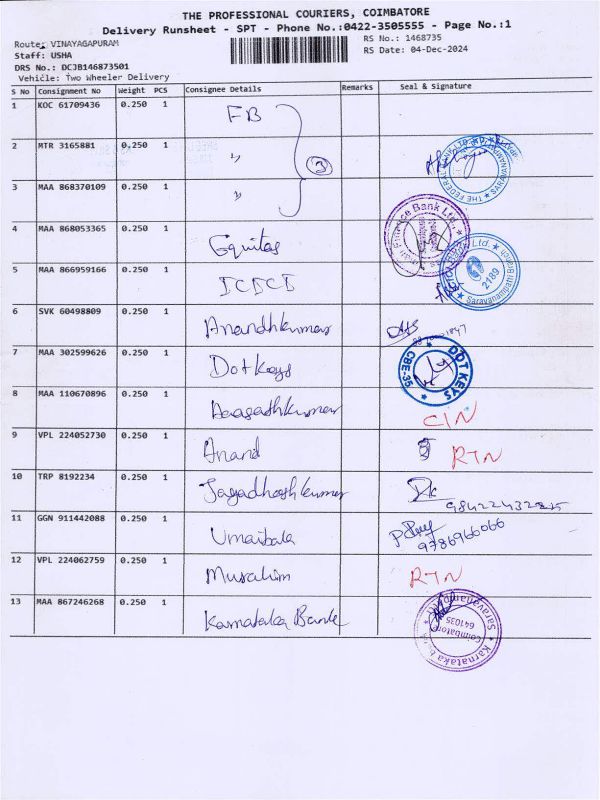 THE PROFESSIONAL COURIERS, COIMBATORE
Delivery Runsheet - SPT - Phone No.:0422-3505555 - Page No.:1
Route: VINAYAGAPURAM
RS No.: 1468735
Staff: USHA
RS Date: 04-Dec-2024
DRS No.: DCJB146873501
Vehicle: Two Wheeler Delivery
S No Consignment No Weight PCS Consignee Details Remarks Seal & Signature
1 KOC 61709436 0.250 1 FB
2 MTR 3165881 0.250 1 " 3
THE FEDERAL BANK LTD.
3 MAA 868370109 0.250 1 "
4 MAA 868053365 0.250 1 Equitas
Finance Bank Ltd.
5 MAA 866959166 0.250 1 ICICI
Bank Ltd. Saravanampatti Branch 2189
6 SVK 60498809 0.250 1 Anandhkumar
7 MAA 302599626 0.250 1 Dotkeys DOT KEYS CBE-35
8 MAA 110670896 0.250 1 Aagashkumar C/N
9 VPL 224052730 0.250 1 Anand RTN
10 TRP 8192234 0.250 1 Jagadhoshkumar
11 GGN 911442088 0.250 1 Umaibala
9786966066
12 VPL 224062759 0.250 1 Musahim RTN
13 MAA 867246268 0.250 1 Karnataka Bank
Karnataka Bank Coimbatore 641035